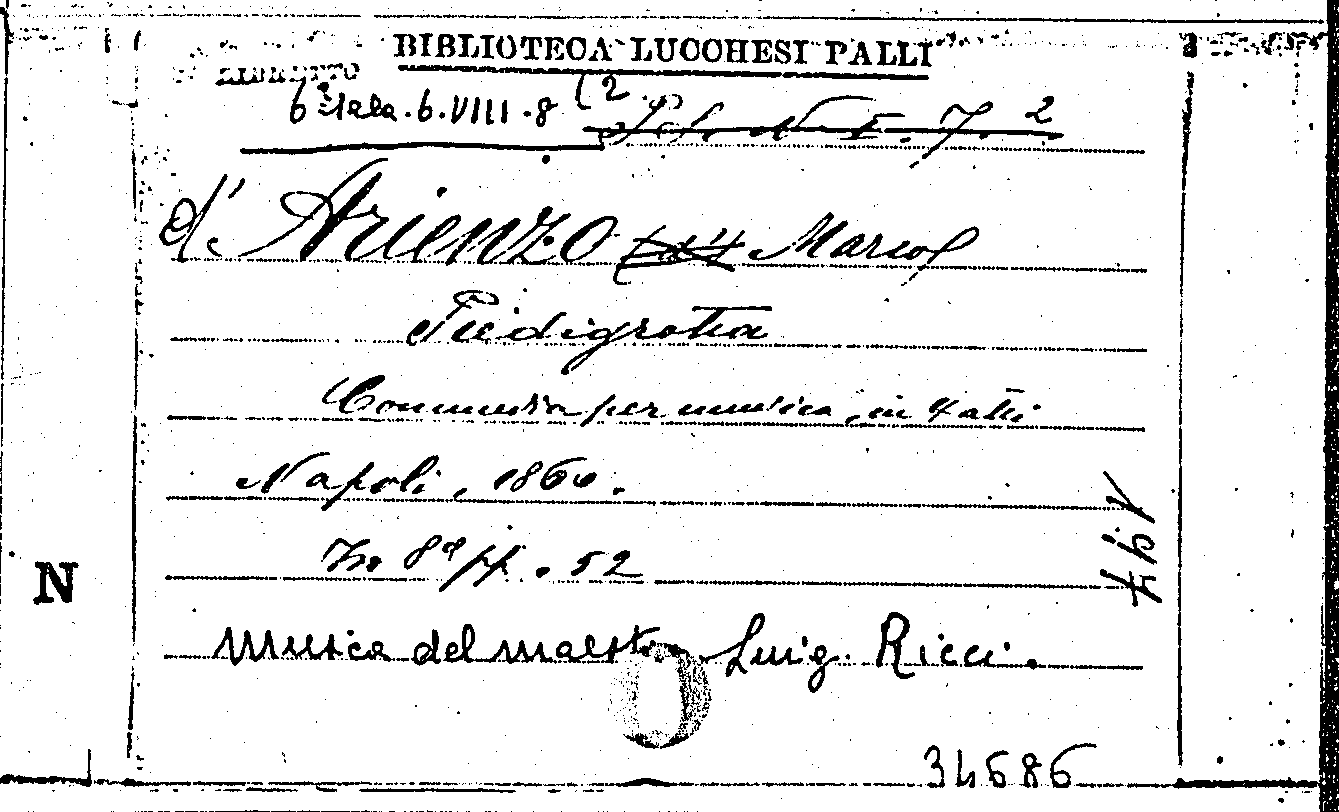 BIBLIOTECA LUCCHESI PALLI
LIBRETTO
6ª Sala. 6. VIII. 8 (2
d'Arienzo Marco
Piedigrotta
Commedia per musica, in 4 atti
Napoli, 1860.
In 8º pp. 52
N
Musica del maestro Luigi Ricci.
34686